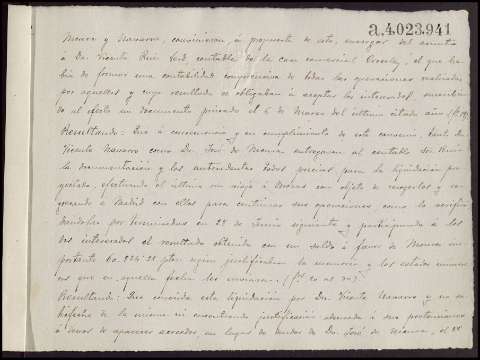 a.4.023.941
Meura y Navarro, convinieron, á propuesta de este, encargar del asunto
á Dn. Vicente Ruiz contable de la casa comercial Crosley, el que ha-
bía de formar una contabilidad comprensiva de todas las operaciones realizadas
por aquellos y cuyo resultado se obligaban á aceptar los interesados, suscribien-
do al efecto un documento privado el 6 de Marzo del último citado año
Resultando: Que á consecuencia y en cumplimiento de este convenio, tanto Dn.
Vicente Navarro como Dn. José de Meura entregaron al contable Sr. Ruiz
la documentación y los antecedentes todos precisos para la liquidación pro-
yectada, efectuando el último un viaje á con objeto de recogerlos y re-
gresando á Madrid con ellos para continuar sus operaciones como lo verificó
dándolas por terminadas en 28 de Junio siguiente y participando á los
dos interesados el resultado obtenido con un saldo á favor de Meura im-
portante 60.224'28 ptas. según justificaban la memoria y los estados numéri-
cos que en aquella fecha les enviaron.
Resultando: Que conocida esta liquidación por Dn. Vicente Navarro y no sa-
tisfecho de la misma ni encontrando justificación adecuada á sus pretensiones
á de aparecer acreedor, en lugar de deudor de Dn. José de Meura, el 28